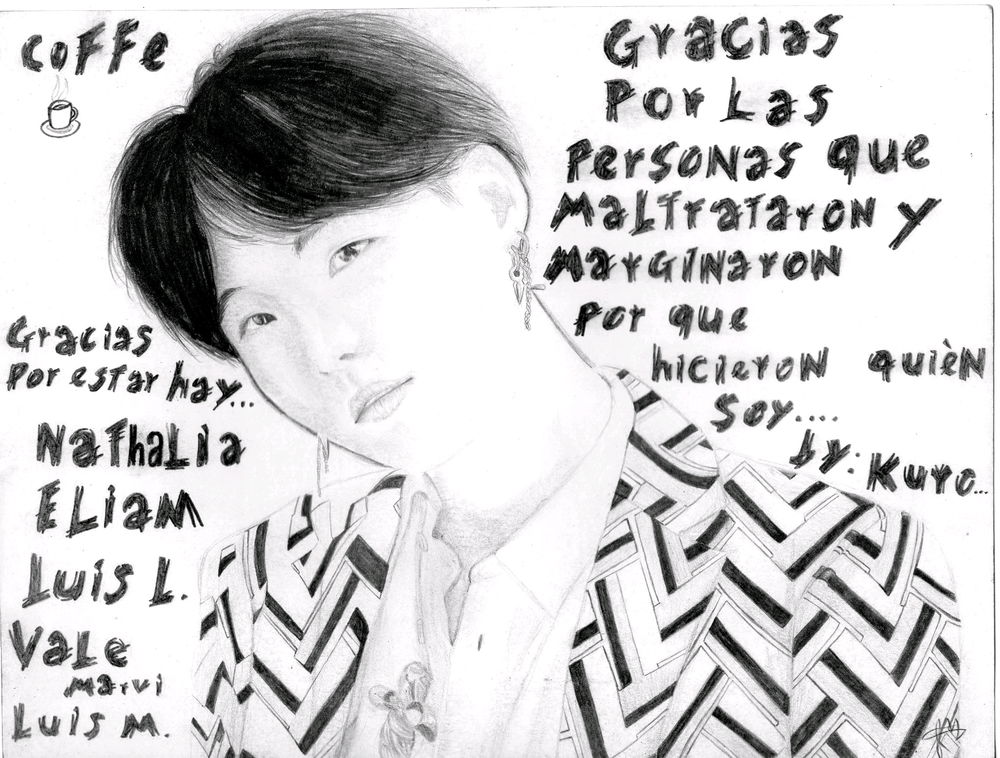 COFFe
Gracias
Por Las
Personas que
MaLTraTaron y
MarGinaron
Por que
hicieron quièn
soy....
by: Kuro...
Gracias
Por estar hay...
NaThaLia
ELiam
Luis L.
Vale
Marvi
Luis M.